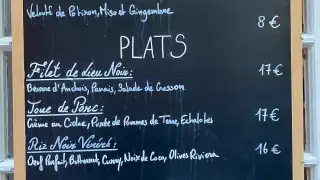 Velouté de Potiron, Miso et Gingembre
8€
PLATS
Filet de lieu Noir:
17€
Beurre d'Anchois, Panais, Salade de Cresson
Joue de Porc:
17€
Crème au Cidre, Purée de Pommes de Terre, Echalotes
Riz Noir Vénéré:
16€
Oeuf Parfait, Butternut, Curry, Noix de Coco, Olives Riviera